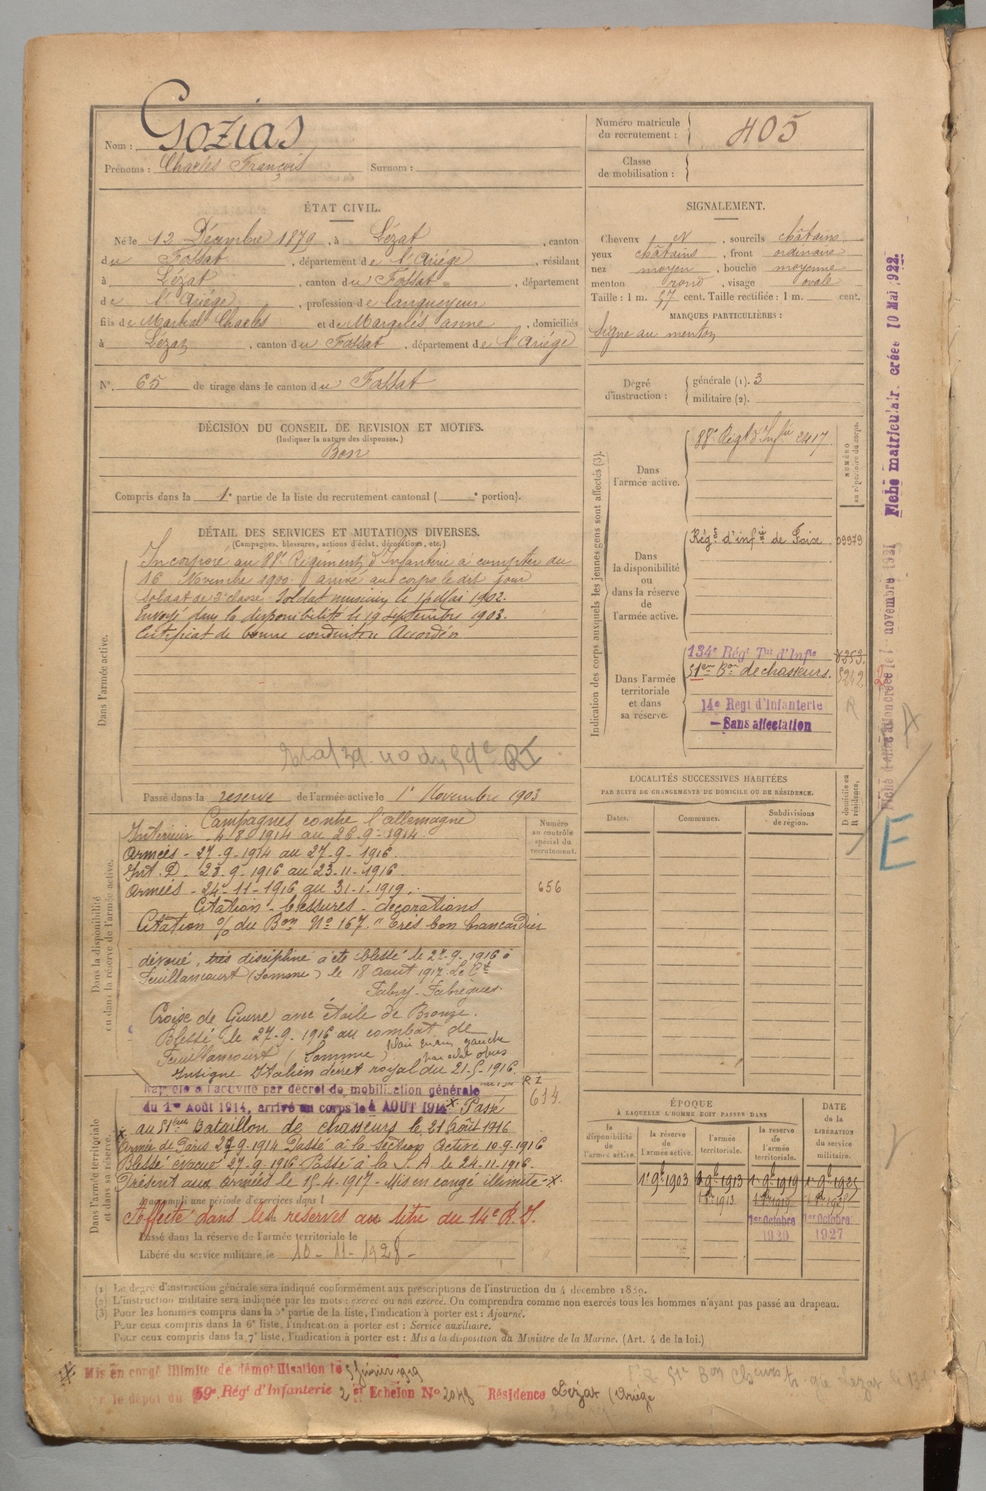 Nom : Gozias
Prénoms : Charles François Surnom :
Numéro matricule du recrutement : 405
Classe de mobilisation :
ÉTAT CIVIL.
Né le 12 Décembre 1879, à Lézat, canton
du Fossat, département de l'Ariége, résidant
à Lézat, canton du Fossat, département
de l'Ariége, profession de langueyeur
fils de Martial Charles et de Margalés anne, domiciliés
à Lézat, canton du Fossat, département de l'Ariége
N° 65 de tirage dans le canton du Fossat
SIGNALEMENT.
Cheveux et , sourcils châtains
yeux châtains, front ordinaire
nez moyen, bouche moyenne
menton rond, visage ovale
Taille : 1 m. 57 cent. Taille rectifiée : 1 m. cent.
MARQUES PARTICULIÈRES :
Signe au menton
Dégré d'instruction : générale (1). 3
militaire (2).
DÉCISION DU CONSEIL DE REVISION ET MOTIFS.
(Indiquer la nature des dispenses.)
Bon
Compris dans la 1e partie de la liste du recrutement cantonal ( e portion).
DÉTAIL DES SERVICES ET MUTATIONS DIVERSES.
(Campagnes, blessures, actions d'éclat, décorations, etc.)
Dans l'armée active.
Incorporé au 88e Régiment d'Infanterie à compter du
16 Novembre 1900. arrivé au corps le dit jour
Soldat de 2e classe. Soldat musicien le 14 Mai 1902.
Envoyé dans la disponibilité le 19 septembre 1903.
Certificat de bonne conduite Accordé
59e RI
Passé dans la reserve de l'armée active le 1er Novembre 1903
Indication des corps auxquels les jeunes gens sont affectés (3).
NUMÉRO au répertoire du corps.
Dans l'armée active.
88e Régt d'Infie 2417
Dans la disponibilité ou dans la réserve de l'armée active.
Régt d'infie de Foix 09979
Dans l'armée territoriale et dans sa réserve.
134e Régt Tal d'Infie
51e Bon de chasseurs.
14e Régt d'Infanterie
— Sans affectation
LOCALITÉS SUCCESSIVES HABITÉES
PAR SUITE DE CHANGEMENTS DE DOMICILE OU DE RÉSIDENCE.
Dates. Communes. Subdivisions de région. D domicile ou R résidence.
Dans la disponibilité ou dans la réserve de l'armée active.
Numéro au contrôle spécial du recrutement.
656
Campagnes contre l'allemagne
Intérieur - 4-8-1914 au 26-9-1914
Armées - 27-9-1914 au 27-9-1916
Int. D - 28-9-1916 au 23-11-1916
Armées - 24-11-1916 au 31-1-1919
Citation - blessures - decorations
Citation o/ du Bon No 167. "très bon brancardier
dévoué, très discipliné a été blessé le 27-9-1916 à
Feuillancourt (Somme) le 18 aout 1917. Le Ct
Fabry-Fabregues.
Croix de Guerre avec étoile de Bronze.
Blessé le 27-9-1916 au combat de
Feuillancourt (Somme) plaie main gauche
par éclat obus
Insigne Italien décret royal du 21-5-1916.
Dans l'armée territoriale et dans sa réserve.
Rappelé à l'activité par décret de mobilisation générale
du 1er Août 1914, arrivé au corps le 4 AOUT 1914 x Passé
au 51ème Bataillon de chasseurs le 21 Août 1916
Blessé évacué 27-9-1916 Passé à la S. A le 24-11-1916.
Présent aux armées le 15-4-1917 - Mis en congé illimité x.
Affecté dans les reserves au titre du 14e R.I.
Passé dans la réserve de l'armée territoriale le
Libéré du service militaire le 10-11-1928
ÉPOQUE
À LAQUELLE L'HOMME DOIT PASSER DANS
DATE de la LIBÉRATION du service militaire.
la disponibilité de l'armée active. la réserve de l'armée active. l'armée territoriale. la réserve de l'armée territoriale.
1er 9bre 1903 1er 9bre 1913 1er 9bre 1919 1er 9bre 1925
1er Octobre 1er Octobre
1927
(1) Le degré d'instruction générale sera indiqué conformément aux prescriptions de l'instruction du 4 décembre 1889.
(2) L'instruction militaire sera indiquée par les mots : exercé ou non exercé. On comprendra comme non exercés tous les hommes n'ayant pas passé au drapeau.
(3) Pour les hommes compris dans la 5e partie de la liste, l'indication à porter est : Ajourné.
Pour ceux compris dans la 6e liste, l'indication à porter est : Service auxiliaire.
Pour ceux compris dans la 7e liste, l'indication à porter est : Mis à la disposition du Ministre de la Marine. (Art. 4 de la loi.)
Mis en congé illimité de démobilisation le 5 février 1919
par le dépôt du 59e Régt d'Infanterie 2e Echelon No 2048 Résidence Lézat (Ariège
Fiche matriculaire créée 10 Mai 1922.
A
E